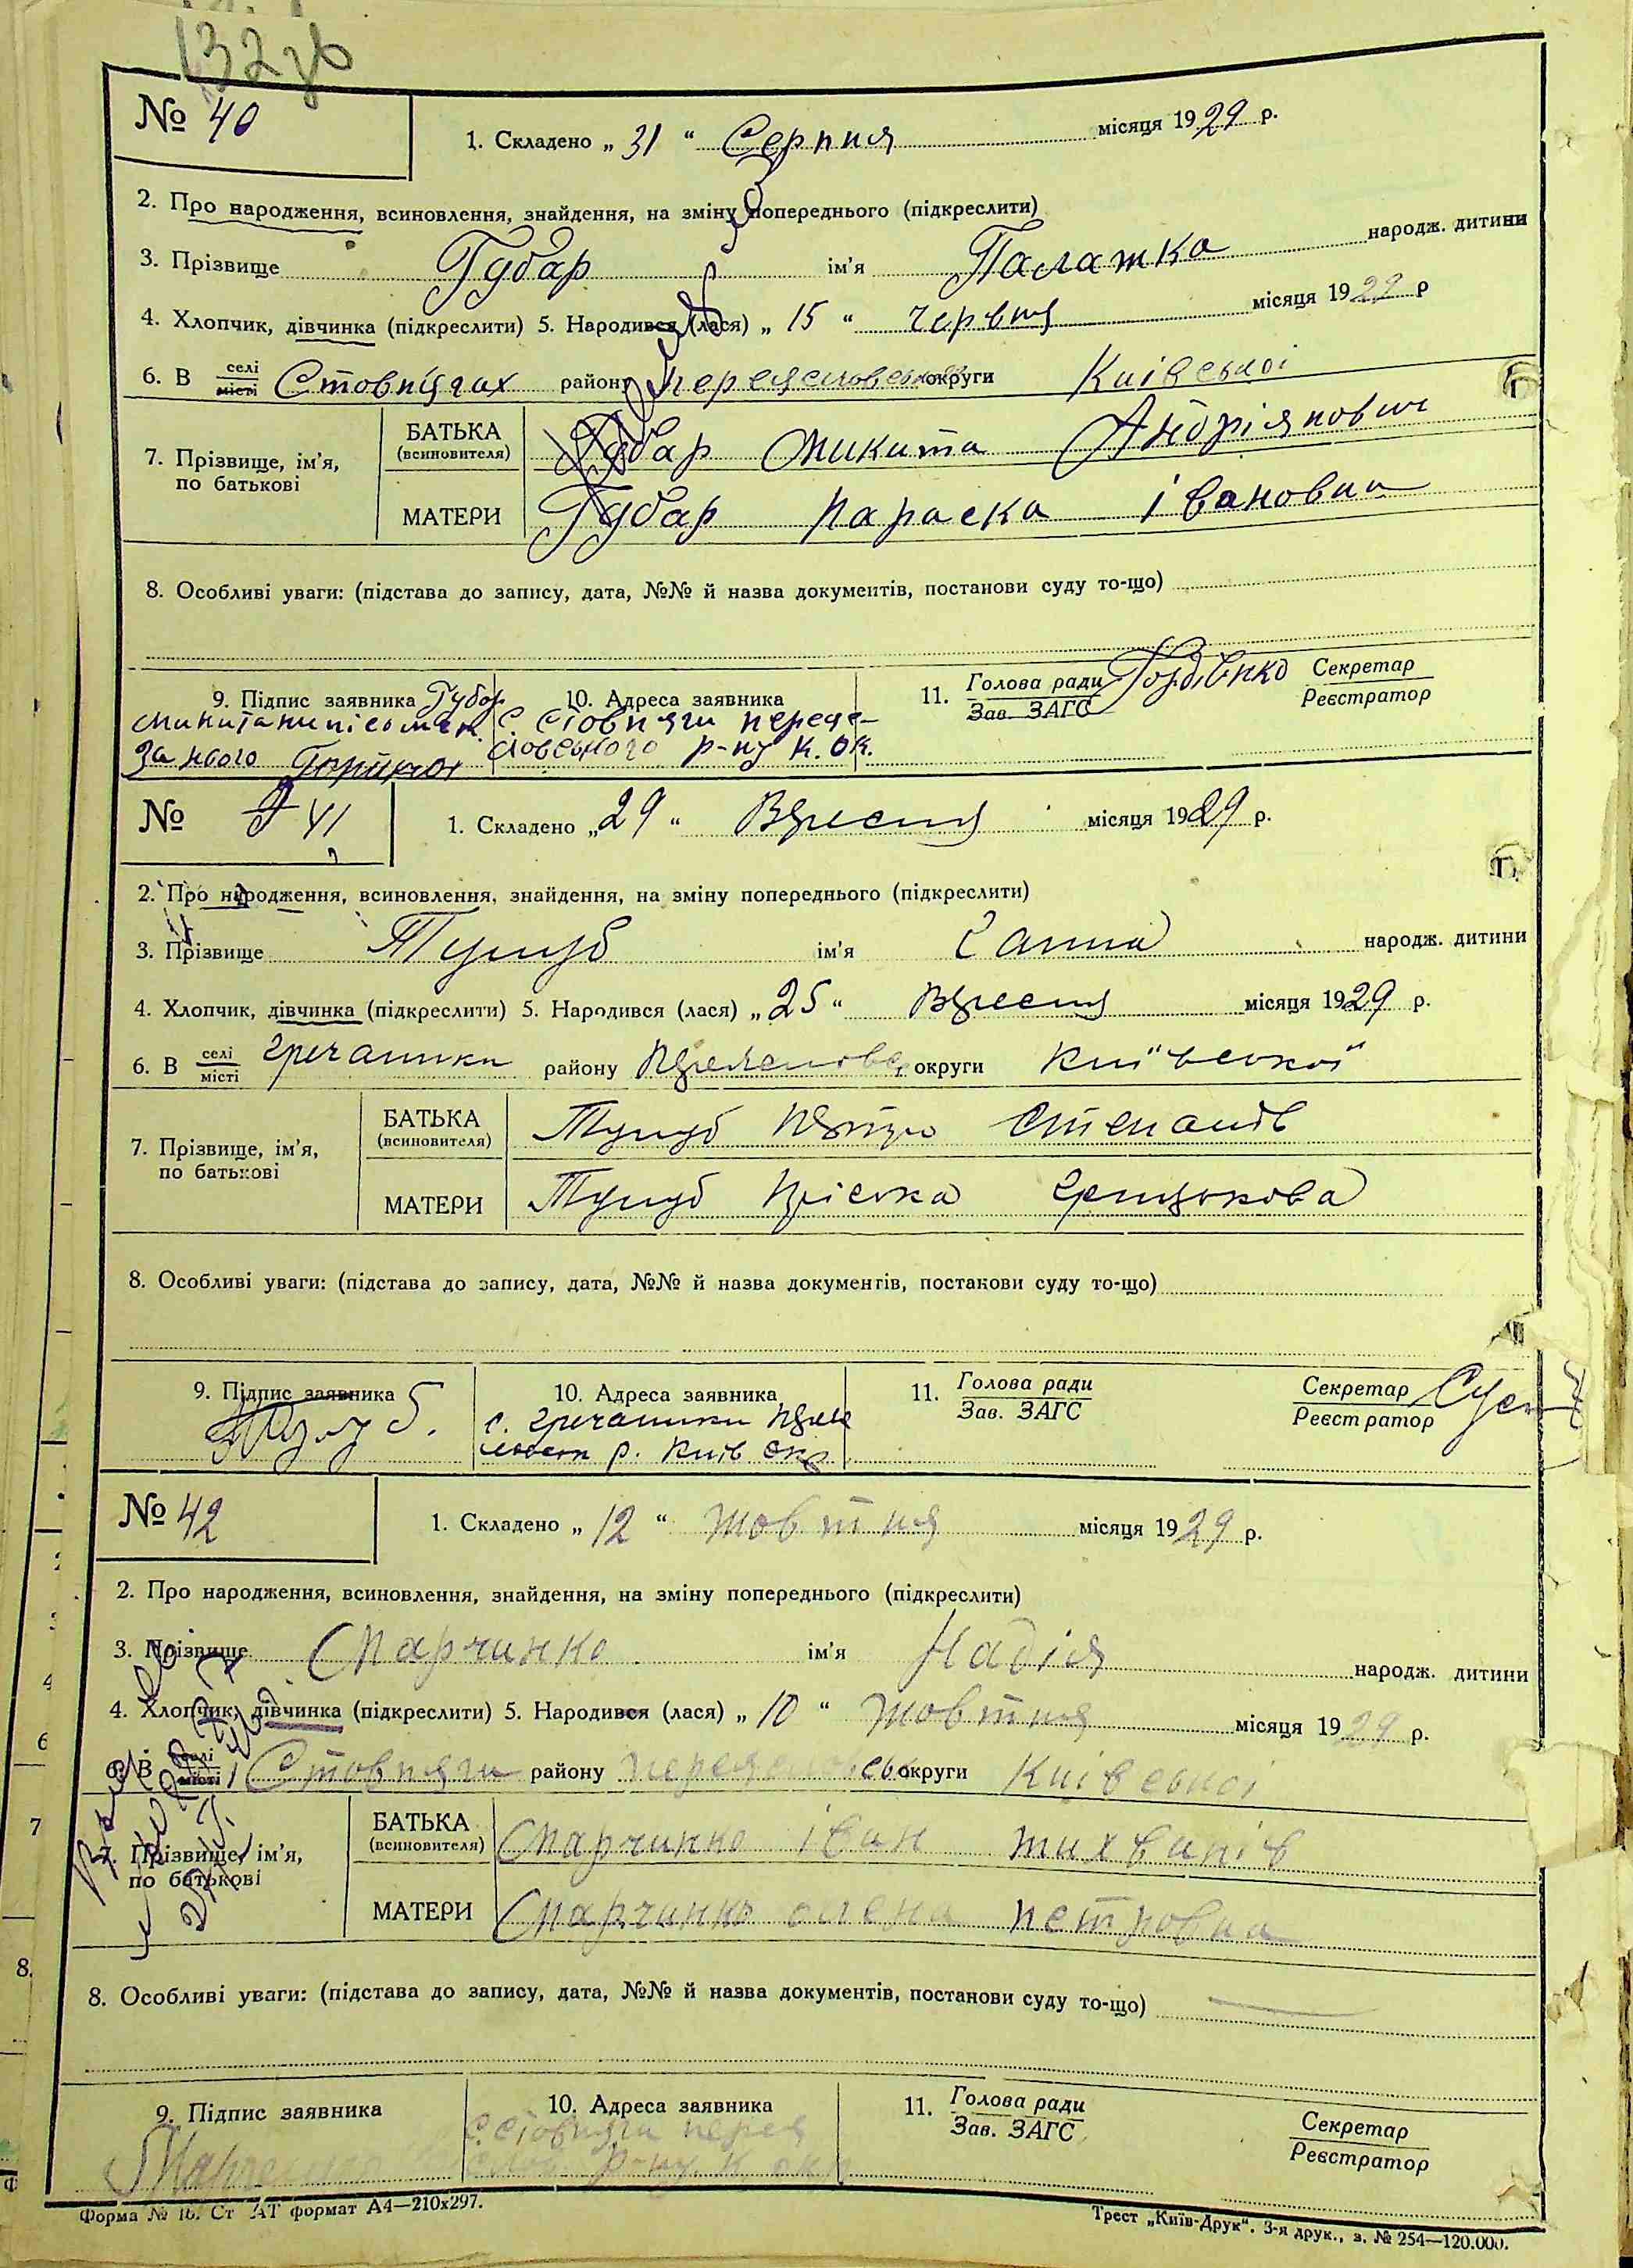 132 зв
№ 40
1. Складено „ 31 “ Серпня місяця 1929 р.
2. Про народження, всиновлення, знайдення, на зміну попереднього (підкреслити)
3. Прізвище Губар ім'я Палажка народж. дитини
4. Хлопчик, дівчинка (підкреслити) 5. Народився (лася) „ 15 “ червня місяця 1929 р
6. В селі/місті Стовпягах району переяславської округи Київської
7. Прізвище, ім'я, по батькові
БАТЬКА (всиновителя) Губар Микита Андріянович
МАТЕРИ Губар параска івановна
8. Особливі уваги: (підстава до запису, дата, №№ й назва документів, постанови суду то-що)
9. Підпис заявника Губар
микита неписьмен.
за нього
10. Адреса заявника
с. Стовпяги переяс-
лавського р-ну К. ок.
11. Голова ради/Зав. ЗАГС Гордієнко Секретар/Реєстратор
№ 41
1. Складено „ 29 “ Вересня місяця 1929 р.
2. Про народження, всиновлення, знайдення, на зміну попереднього (підкреслити)
3. Прізвище Тулуб ім'я Ганна народж. дитини
4. Хлопчик, дівчинка (підкреслити) 5. Народився (лася) „ 25 “ Вересня місяця 1929 р.
6. В селі/місті Гречаники району Переяславс. округи Київської
7. Прізвище, ім'я, по батькові
БАТЬКА (всиновителя) Тулуб Петро Степанів
МАТЕРИ Тулуб Пріська Грицькова
8. Особливі уваги: (підстава до запису, дата, №№ й назва документів, постанови суду то-що)
9. Підпис заявника
Тулуб.
10. Адреса заявника
с. Гречаники Перея
славськ р. Київ окр
11. Голова ради/Зав. ЗАГС Секретар/Реєстратор
№ 42
1. Складено „ 12 “ жовтня місяця 1929 р.
2. Про народження, всиновлення, знайдення, на зміну попереднього (підкреслити)
3. Прізвище Марчинко ім'я Надія народж. дитини
4. Хлопчик, дівчинка (підкреслити) 5. Народився (лася) „ 10 “ жовтня місяця 1929 р.
6. В селі/місті Стовпяги району переяславськ округи Київської
7. Прізвище, ім'я, по батькові
БАТЬКА (всиновителя) Марчинко іван
МАТЕРИ Марчинко олена петровна
8. Особливі уваги: (підстава до запису, дата, №№ й назва документів, постанови суду то-що)
9. Підпис заявника
10. Адреса заявника
с. Стовпяги перея
слав р-ну К окр
11. Голова ради/Зав. ЗАГС Секретар/Реєстратор
Форма № 16. Ст АТ формат А4—210х297.
Трест „Київ-Друк“. 3-я друк., з. № 254—120.000.